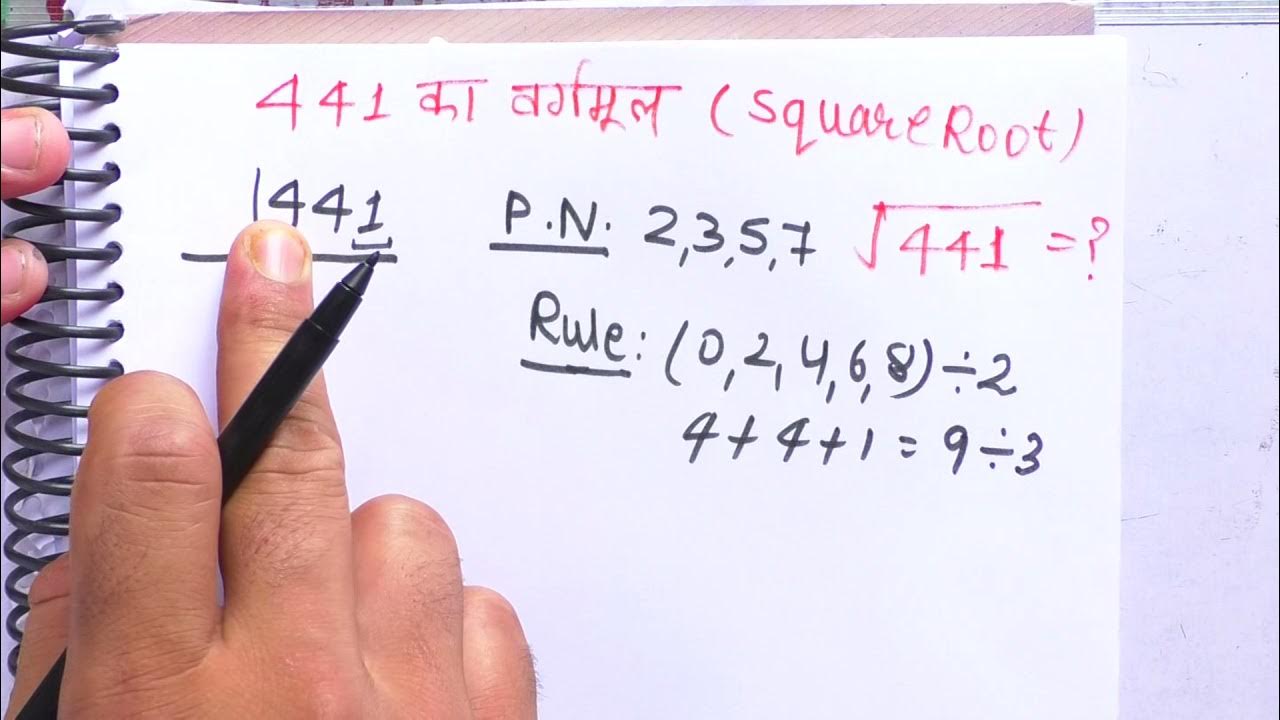 441 का वर्गमूल (Square Root)
441
P.N. 2,3,5,7
√441 =?
Rule: (0,2,4,6,8)÷2
4+4+1=9÷3